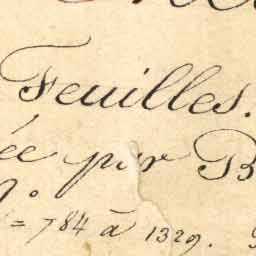 Feuilles.
ée par B
= 784 à 1329.